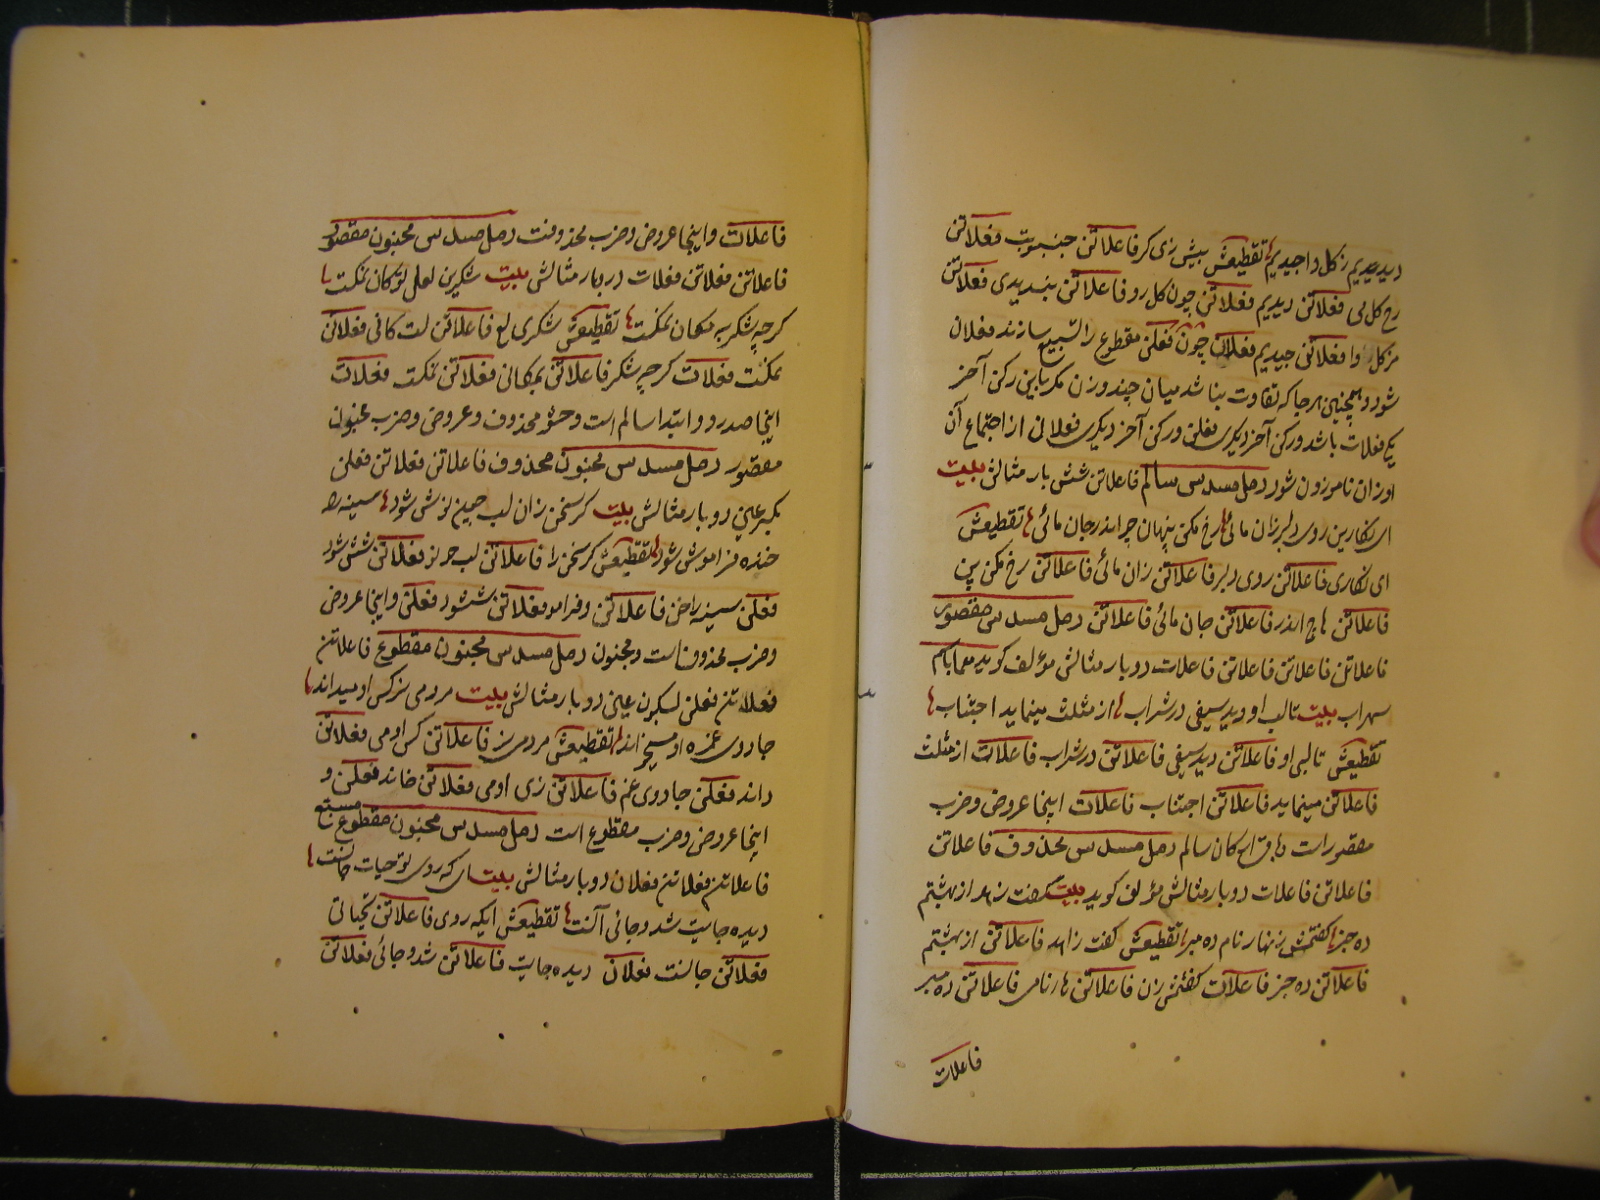 دیدیدیم ز کل واجیدیم تقطیعش بیش زی کر فاعلاتن جنبوبت فعلاتن
رخ کل بی فعلاتن دیدیم فعلاتن چون کل رو فاعلاتن بندیدی فعلاتن
مز کل وا فعلاتن جیدیم فعلان چون فعلن مقطوع را تسبیغ سازند فعلان
شود و همچنین هرجا که تفاوت نباشد میان چند وزن مکر باین رکن آخر
یکی فعلات باشد و رکن آخر دیکری فعلن و رکن آخر دیکری فعلان از اجتماع آن
اوزان ناموزون شود رمل مسدس سالم فاعلاتن شش بار مثالش بیت
ای نکارین روی دلبر زان مائی رخ مکن پنهان چو اندر جان مائی تقطیعش
ای نکاری فاعلاتن روی دلبر فاعلاتن زان مائی فاعلاتن رخ مکن پن
فاعلاتن ها چ اندر فاعلاتن جان مائی فاعلاتن رمل مسدس مقصور
فاعلاتن فاعلاتن فاعلات دوبار مثالش مؤلف کوید معما باسم
سهراب بیت تالب او دید سیفی در شراب از مثلث مینماید اجتناب
تقطیعش تالبی او فاعلاتن دید سیفی فاعلاتن در شراب فاعلات از مثلث
فاعلاتن مینماید فاعلاتن اجتناب فاعلات اینجا عروض و ضرب
مقصور است و باقی ارکان سالم رمل مسدس محذوف فاعلاتن
فاعلاتن فاعلات دوبار مثالش مؤلف کوید بیت کفت زاهد از بهشتم
ده خبر کفتمش زنهار نام ده مبر تقطیعش کفت زاهد فاعلاتن از بهشتم
فاعلاتن ده خبر فاعلات کفتمش زن فاعلاتن هار نامی فاعلاتن ده مبر
فاعلات
فاعلات و اینجا عروض و ضرب محذوفست رمل مسدس مخبون مقصور
فاعلاتن فعلاتن فعلات دوبار مثالش بیت شکرین لعل تو کان نمکت
کرچه شکر به مکان نمکت تقطیعش شکری لع فاعلاتن لت کانی فعلاتن
نمکت فعلات کرچ شکر فاعلاتن بمکانی فعلاتن نمکت فعلات
اینجا صدر و ابتدا سالم است و حشو محذوف و عروض و ضرب مخبون
مقصور رمل مسدس مخبون محذوف فاعلاتن فعلاتن فعلن
بکسر عین دوبار مثالش بیت کر سخن زان لب چون نوش شود سینه را
خنده فراموش شود تقطیعش کر سخن زا فاعلاتن لب چو نو فعلاتن شش شود
فعلن سینه را خن فاعلاتن و فرامو فعلاتن ششود فعلن و اینجا عروض
و ضرب محذوف است و مخبون رمل مسدس مخبون مقطوع فاعلاتن
فعلاتن فعلن بسکون عین دوبار مثالش بیت مردمی نرکس او میداند
جادوی غمزه او میخواند تقطیعش مردمی نر فاعلاتن کس او می فعلاتن
داند فعلن جادوی غم فاعلاتن زی او می فعلاتن خاند فعلن و
اینجا عروض و ضرب مقطوع است رمل مسدس مخبون مقطوع مسبغ
فاعلاتن فعلاتن فعلان دوبار مثالش بیت ای که روی تو حیات جانست
دیده جایت شد و جائی آنست تقطیعش ایکه روی فاعلاتن تحیاتی
فعلاتن جانست فعلان دیده جایت فاعلاتن شد و جائی فعلاتن